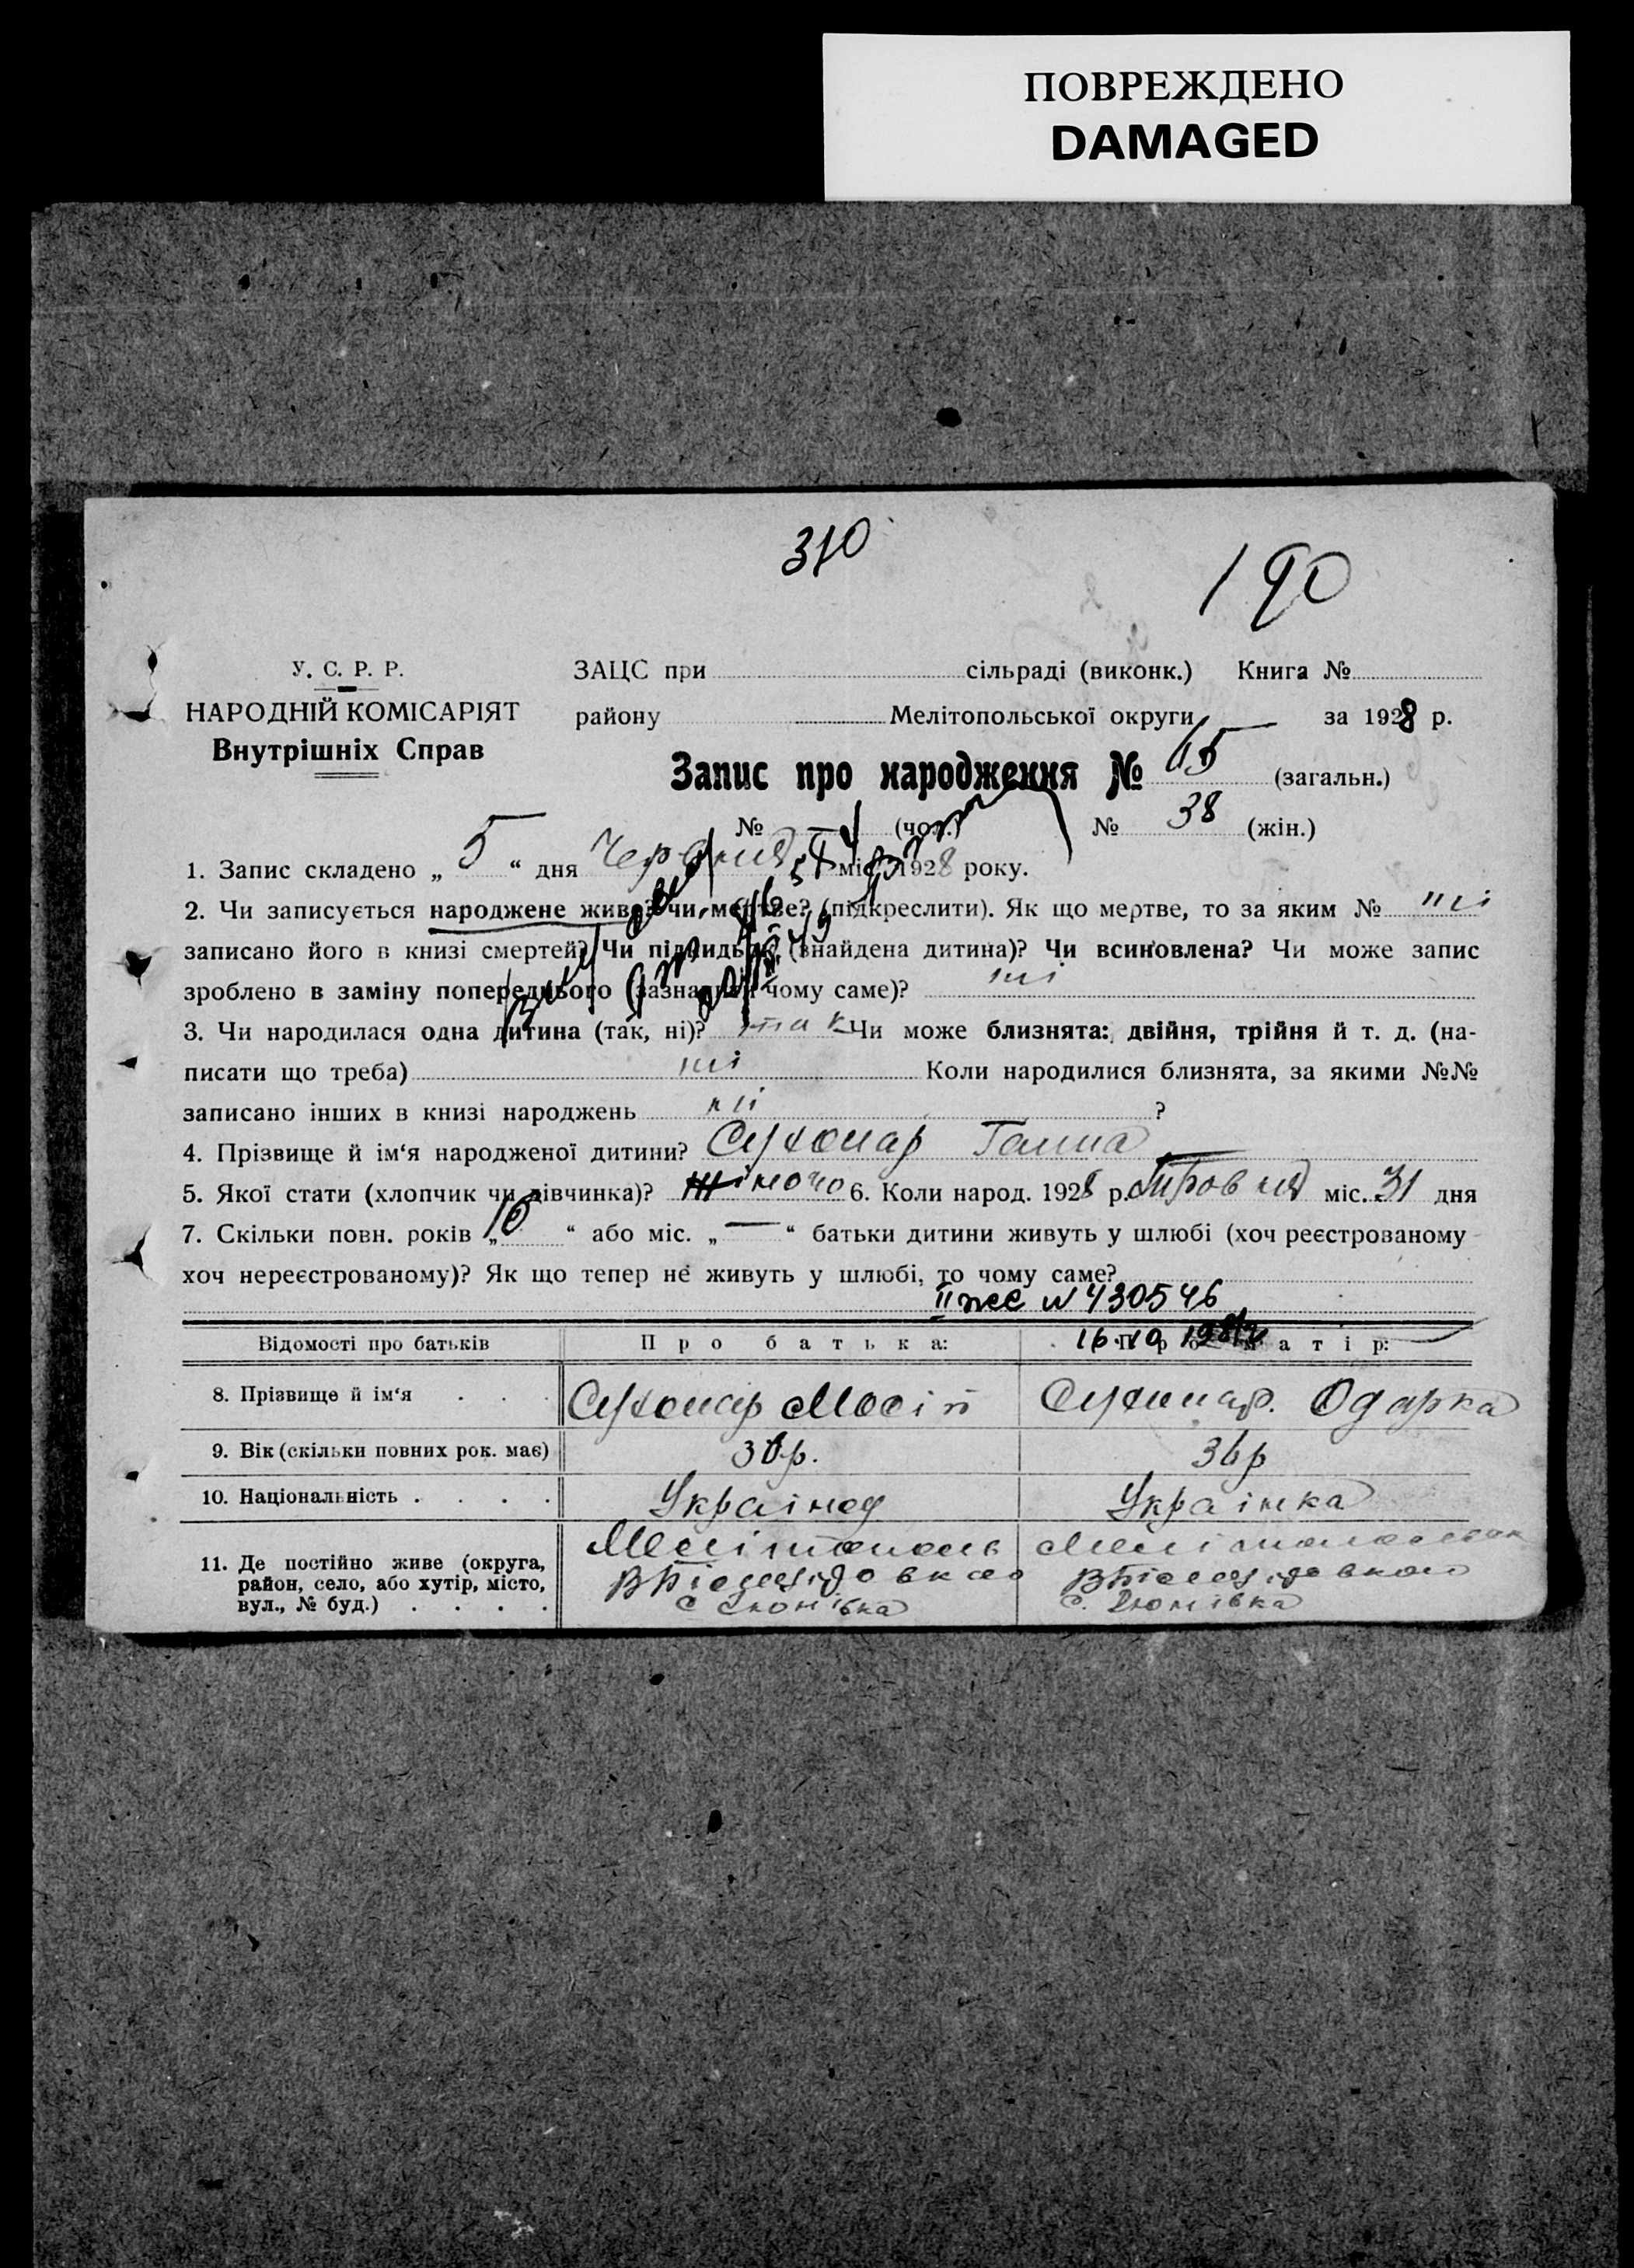 ПОВРЕЖДЕНО
DAMAGED
310
190
У. С. Р. Р.
НАРОДНІЙ КОМІСАРІЯТ
Внутрішніх Справ
ЗАЦС при сільраді (виконк.) Книга №
району Мелітопольської округи за 1928 р.
Запис про народження № (загальн.)
№ — (чол.) № 38 (жін.)
1. Запис складено „ 5 “ дня Червня міс. 1928 року.
2. Чи записується народжене живе? чи мертве? (підкреслити). Як що мертве, то за яким № ні
записано його в книзі смертей? Чи підкидьок (знайдена дитина)? Чи всиновлена? Чи може запис
зроблено в заміну попереднього (зазначити чому саме)? ні
3. Чи народилася одна дитина (так, ні)? так Чи може близнята: двійня, трійня й т. д. (на-
писати що треба) ні Коли народилися близнята, за якими №№
записано інших в книзі народжень ні ?
4. Прізвище й ім‘я народженої дитини? Сухонар Ганна
5. Якої стати (хлопчик чи дівчинка)? Жіночо 6. Коли народ. 1928 р. міс. 31 дня
7. Скільки повн. років „ 10 “ або міс. „ — “ батьки дитини живуть у шлюбі (хоч реєстрованому
хоч нереєстрованому)? Як що тепер не живуть у шлюбі, то чому саме?
II же № 430546
Відомості про батьків Про батька: Про матір:
8. Прізвище й ім‘я Сухонар Мосій Сухонар Одарка
9. Вік (скільки повних рок. має) 36 р. 36 р
10. Національність Українец Українка
11. Де постійно живе (округа,
район, село, або хутір, місто,
вул., № буд.)